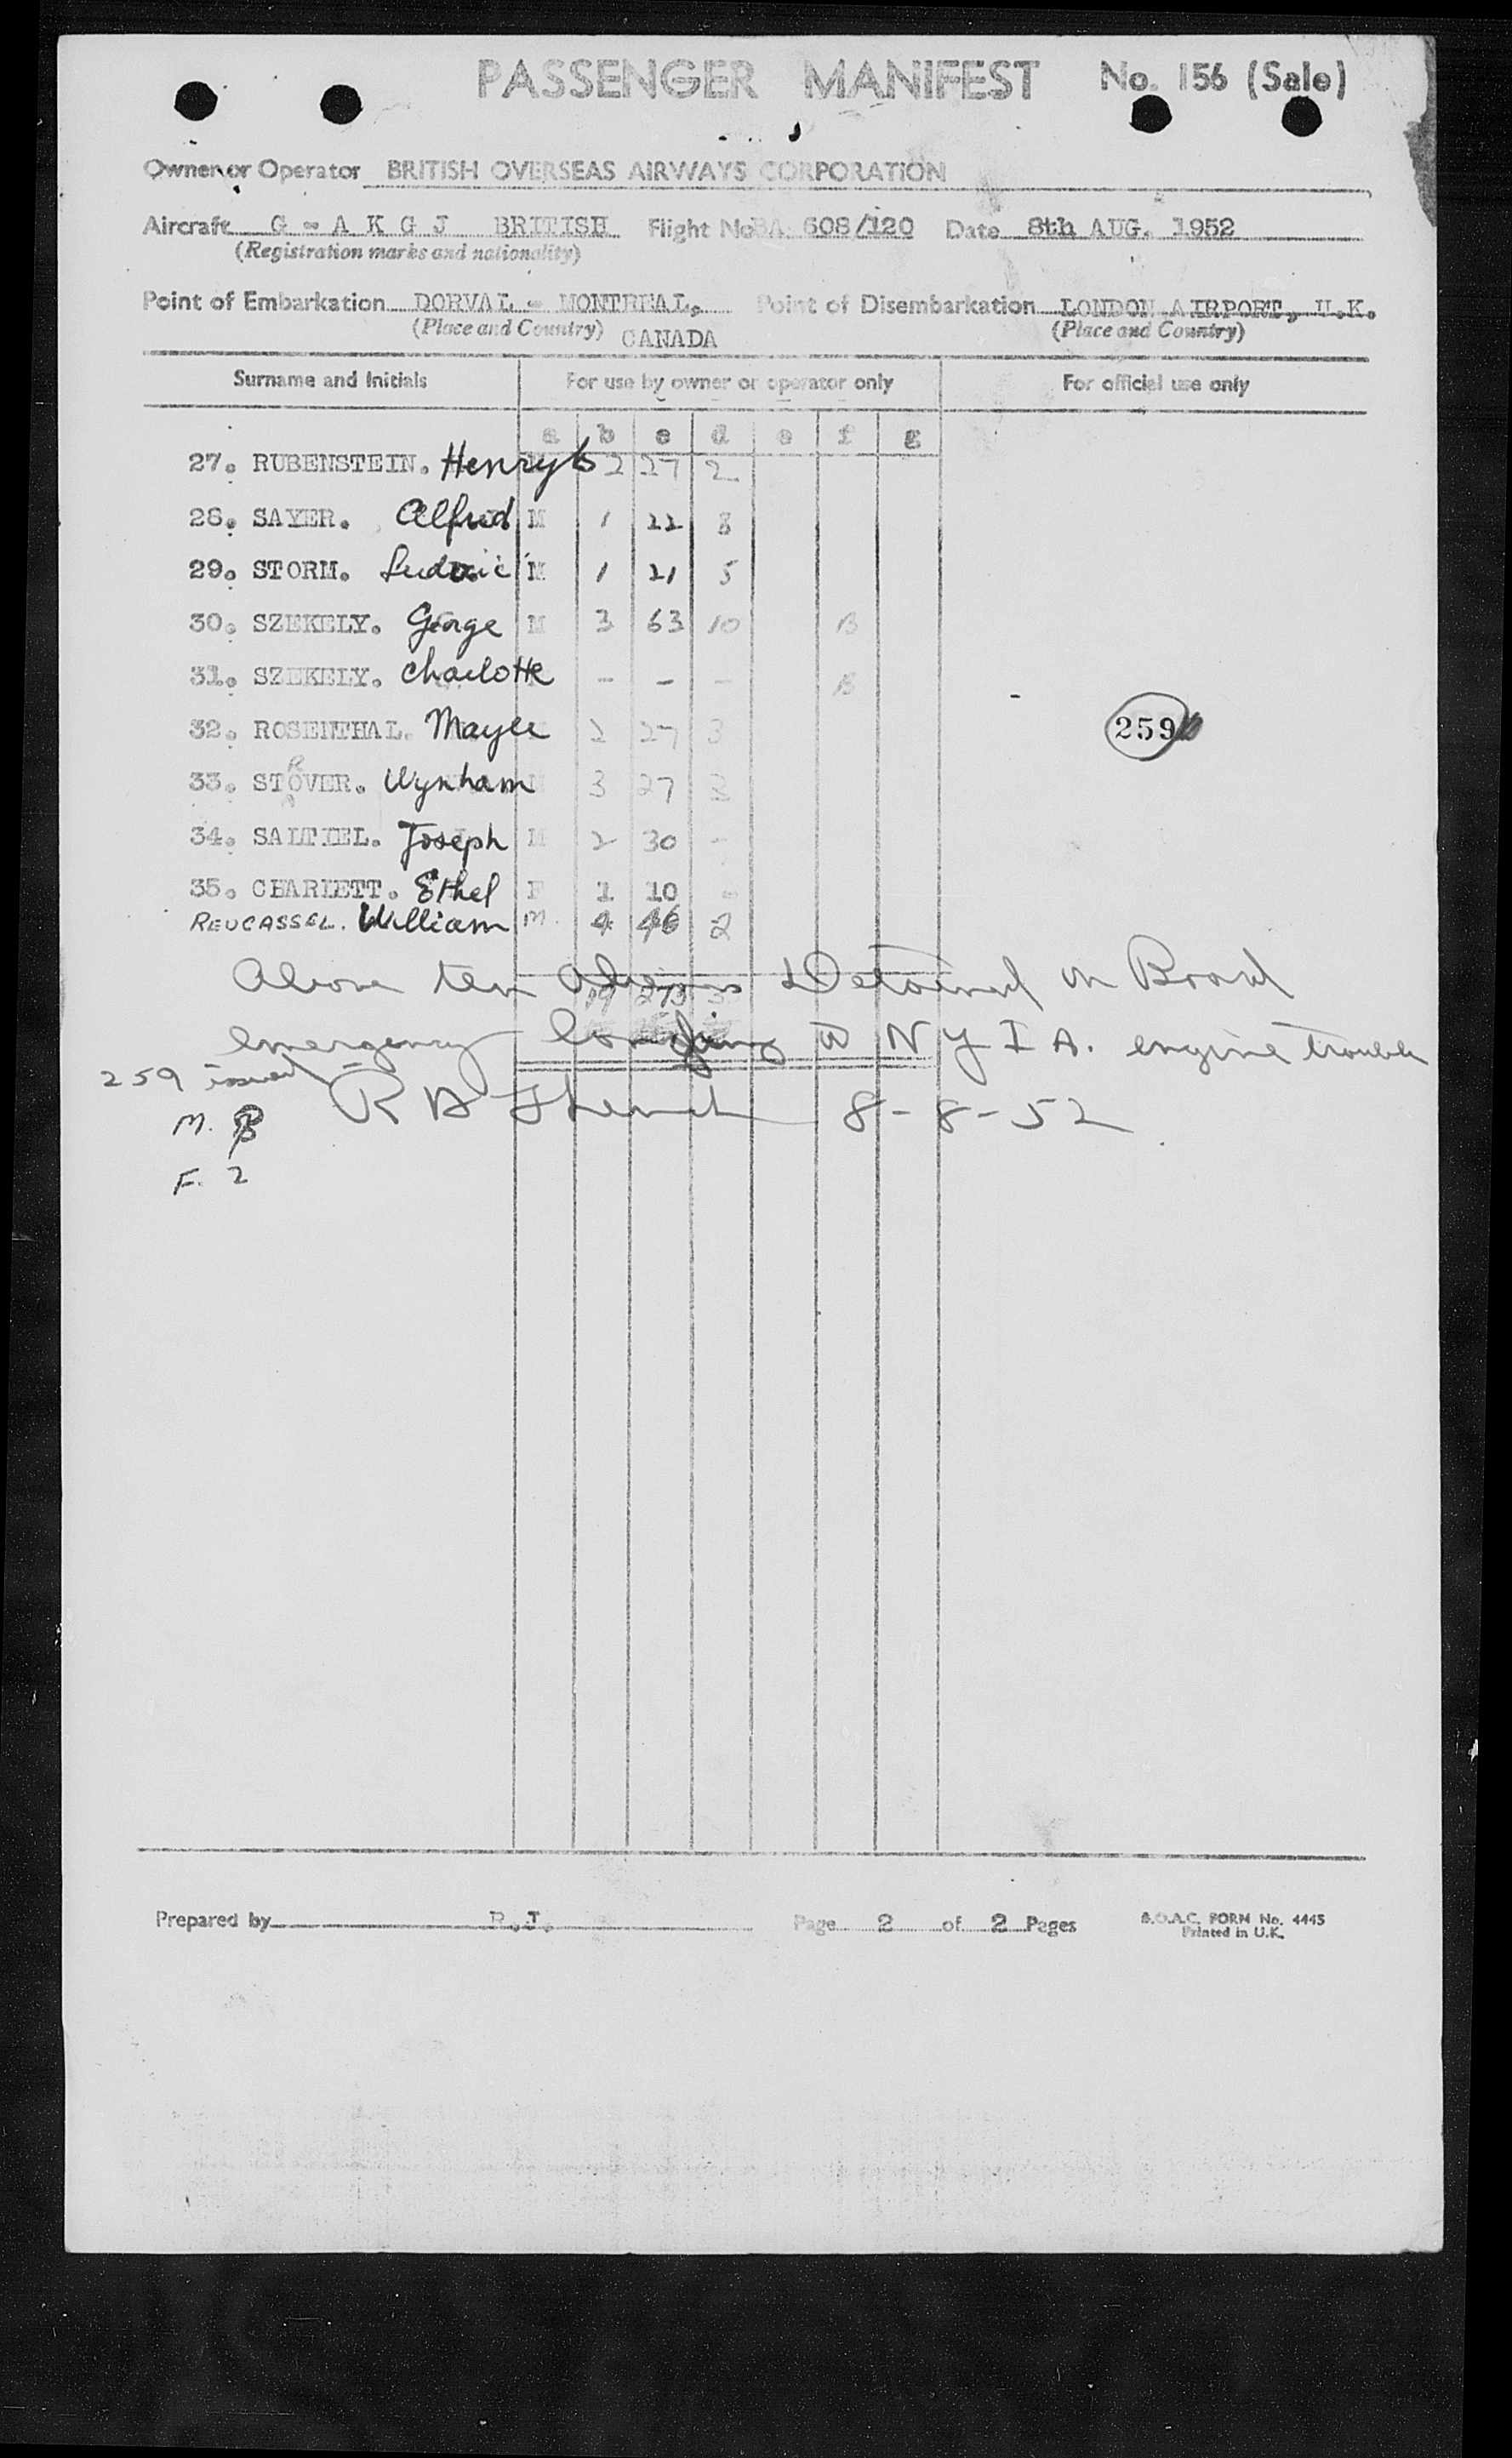 PASSENGER MANIFEST No. 156 (Sale)
Owner or Operator BRITISH OVERSEAS AIRWAYS CORPORATION
Aircraft G - A K G J BRITISH Flight No BA 608/120 Date 8th AUG. 1952
(Registration marks and nationality)
Point of Embarkation DORVAL - MONTREAL, Point of Disembarkation LONDON AIRPORT, U.K.
(Place and Country) CANADA (Place and Country)
Surname and Initials For use by owner or operator only For official use only
a b c d e f g
27. RUBENSTEIN. Henry 2 27 2
28. SAYER. Alfred M 1 22 8
29. STORM. Ludovic M 1 21 5
30. SZEKELY. George M 3 63 10 B
31. SZEKELY. Charlotte - - - B
32. ROSENTHAL. Mayer 2 27 3
259
33. STOVER. Wynham 3 27
R
34. SALTIEL. Joseph M 2 30 -
35. CHARLETT. Ethel F 1 10 -
REUCASSEL. William M. 4 46 2
Above ten Aliens Detained on Board
19 273
emergency landing at N Y I A. engine trouble
259 issued
R 8-8-52
M. 8
F. 2
Prepared by R.J. Page 2 of 2 Pages
B.O.A.C. FORM No. 4445
Printed in U.K.